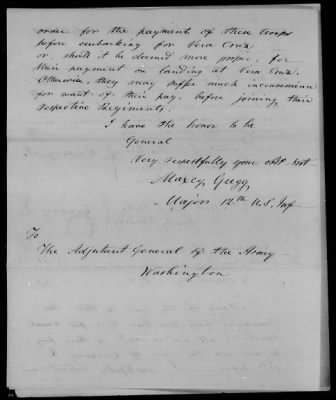 order for the payment of these troops
before embarking for Vera Cruz
or, should it be deemed more proper, for
their payment on landing at Vera Cruz.
Otherwise, they may suffer much inconvenience
for want of their pay, before joining their
respective Regiments.
I have the honor to be
General
Very respectfully your obdt svt
Maxcy Gregg
Major 12th U.S. Inf
To
The Adjutant General of the Army
Washington